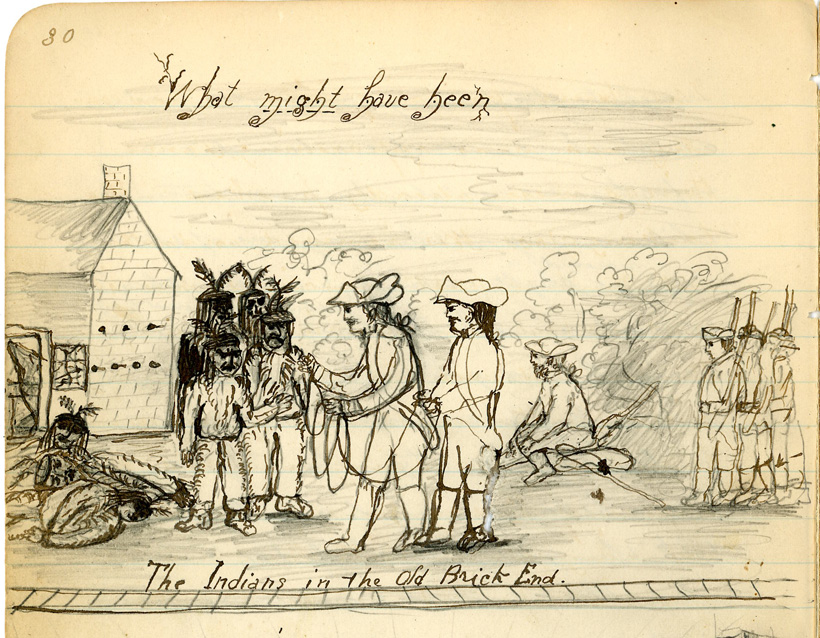 30
What might have been
The Indians in the Old Brick End.